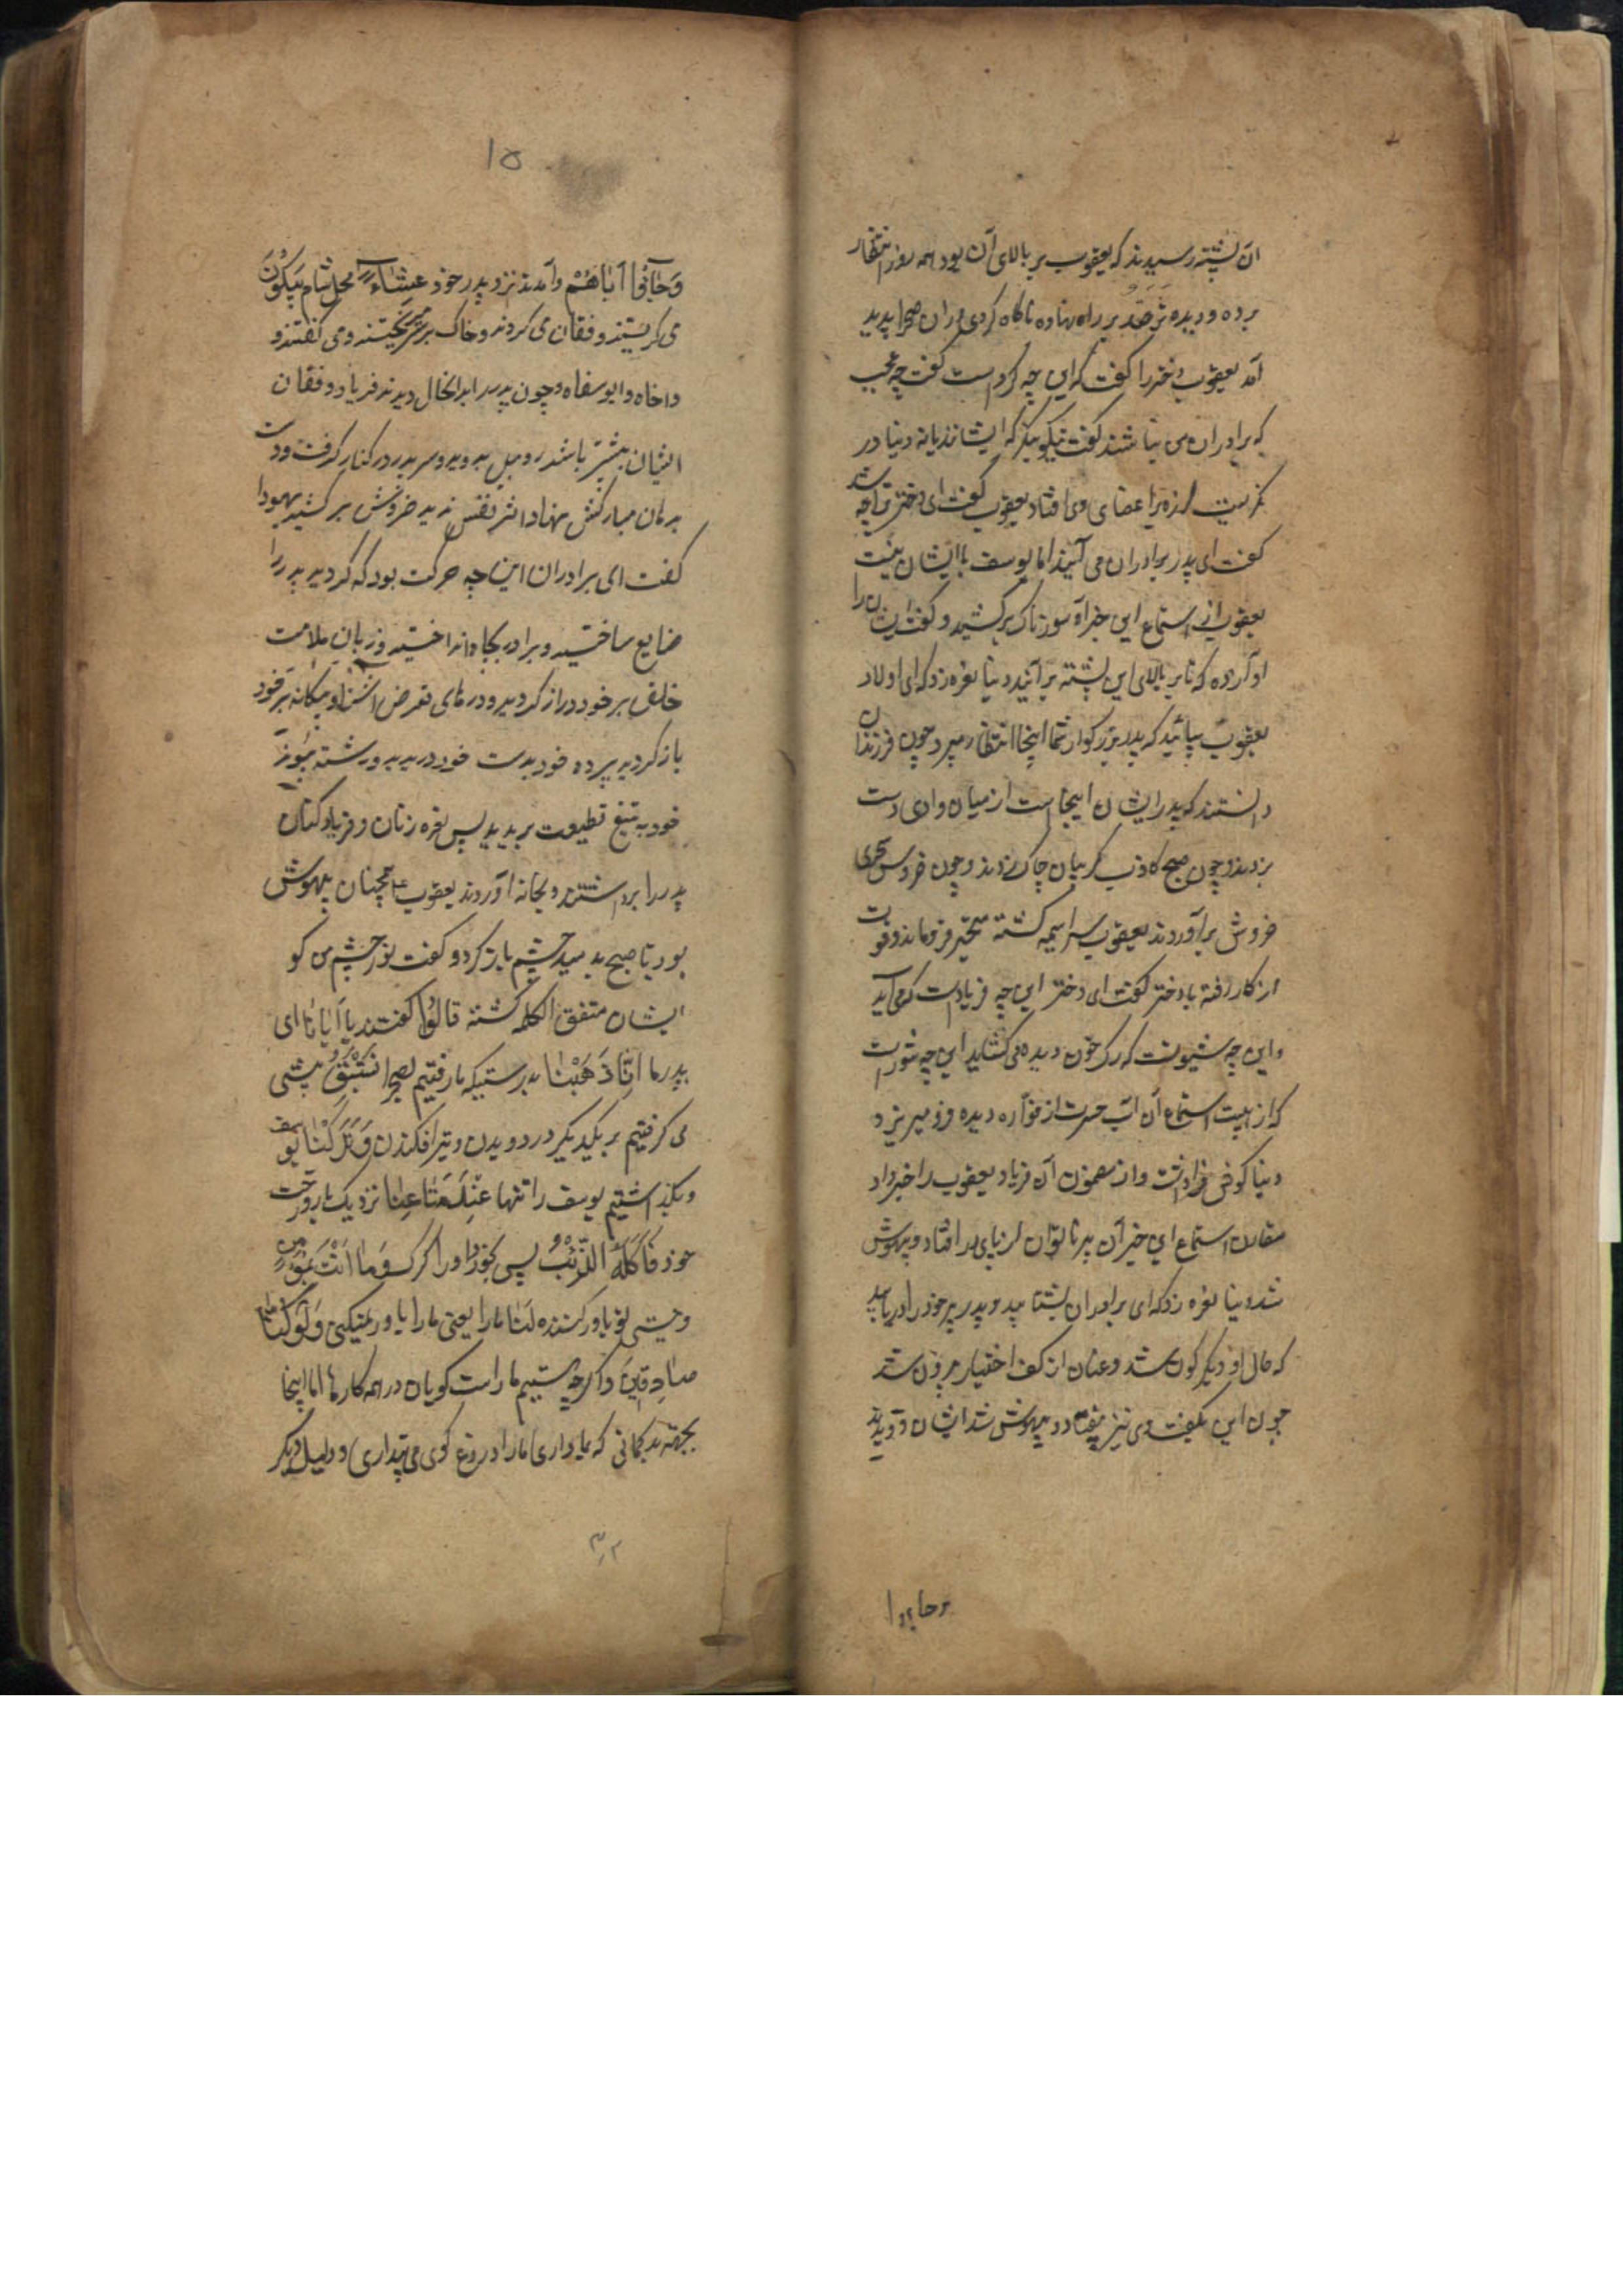 ان پشته رسیدند که یعقوب بر بالای آن بود همه روز انتظار
برده و دیده ترصد بر راه نهاده ناکاه کردی در ان صحرا پدید
آمد یعقوب دختر را کفت که این چه کرد است کفت چه عجب
که برادران من باشند کفت نیکو بنکر که ایشانند یا نه دنیا در
نکریست لرزه بر اعضای وی افتاد یعقوب کفت ای دختر ترا چه شد
کفت ای پدر برادران می آیند اما یوسف با ایشان نیست
یعقوب از استماع این خبر آه سوزناک برکشید و کفت ایشان را
او آرزده که تا بر بالای این پشته برآیند دنیا نعره زد که ای اولاد
یعقوب بیائید که پدر بزرکوار شما اینجا انتظار میبرد چون فرزندان
دانستند که پدر ایشان اینجا است از میان وادی دست
بزدند و چون صبح کاذب کریبان چاک زدند و چون خروس سحری
خروش برآوردند یعقوب سراسیمه کشته متحیر فروماند و قوت
از کار رفته با دختر کفت ای دختر این چه فریاد است که می آید
و این چه شیونست که رک خون دیده می کشاید این چه شور است
که از هیبت استماع آن آب حسرت از فواره دیده فرو میریزد
دنیا کوش فرا داشت و از مضمون آن فریاد یعقوب را خبر داد
مقارن استماع این خبر آن پیر ناتوان از پای در افتاد و بیهوش
شد دنیا نعره زد که ای برادران بشتابید و پدر پیر خود را دریابید
که حال او دیکرکون شد و عنان از کف اختیار بیرون شد
چون این بکفت وی نیز بیفتاد و بیهوش شد ایشان دویدند
و جاؤا
١٥
وَجَاؤُا أَبَاهُمْ و آمدند نزد پدر خود عِشَاءً محل شام يَبْكُونَ
می کریستند و فغان می کردند و خاک بر سر میریختند و می کفتند و
وا خاه وا یوسفاه و چون پدر را بدانحال دیدند فریاد و فغان
ایشان بیشتر باشد روبیل بدوید و سر پدر در کنار کرفت و دست
بدهان مبارکش نهاد اثر نفس ندید خروش برکشید یهودا
کفت ای برادران این چه حرکت بود که کردید پدر را
ضایع ساختید و برادر بچاه انداختید و زبان ملامت
خلق بر خود دراز کردید و درهای تعرض آشنا و بیکانه بر خود
باز کردید پرده خود بدست خود دریدید و رشته پیوند
خود به تیغ قطیعت بریدید پس نعره زنان و فریاد کنان
پدر را برداشتند و بخانه آوردند یعقوب ع همچنان بیهوش
بود تا صبح بدمید چشم باز کرد و کفت نور چشم من کو
ایشان متفق الکلمه کشته قَالُوا کفتند یَا أَبَانَا ای
پدر ما إِنَّا ذَهَبْنَا بدرستیکه ما رفتیم بصحرا نَسْتَبِقُ پیشی
می کرفتیم بر یکدیکر در دویدن و تیر افکندن وَتَرَكْنَا یوسف
و بکذاشتیم یوسف را تنها عِنْدَ مَتَاعِنَا نزدیک بار و رخت
خود فَأَكَلَهُ الذِّئْبُ پس بخورد او را کرک وَمَا أَنْتَ بِمُؤْمِنٍ
و نیستی تو باور کننده لَنَا ما را یعنی ما را باور نمیکنی وَلَوْ كُنَّا
صَادِقِينَ و اکرچه هستیم ما راست کویان در همه کارها اما اینجا
بجهة بدکمانی که بما داری ما را دروغ کوی می پنداری و دلیل دیکر